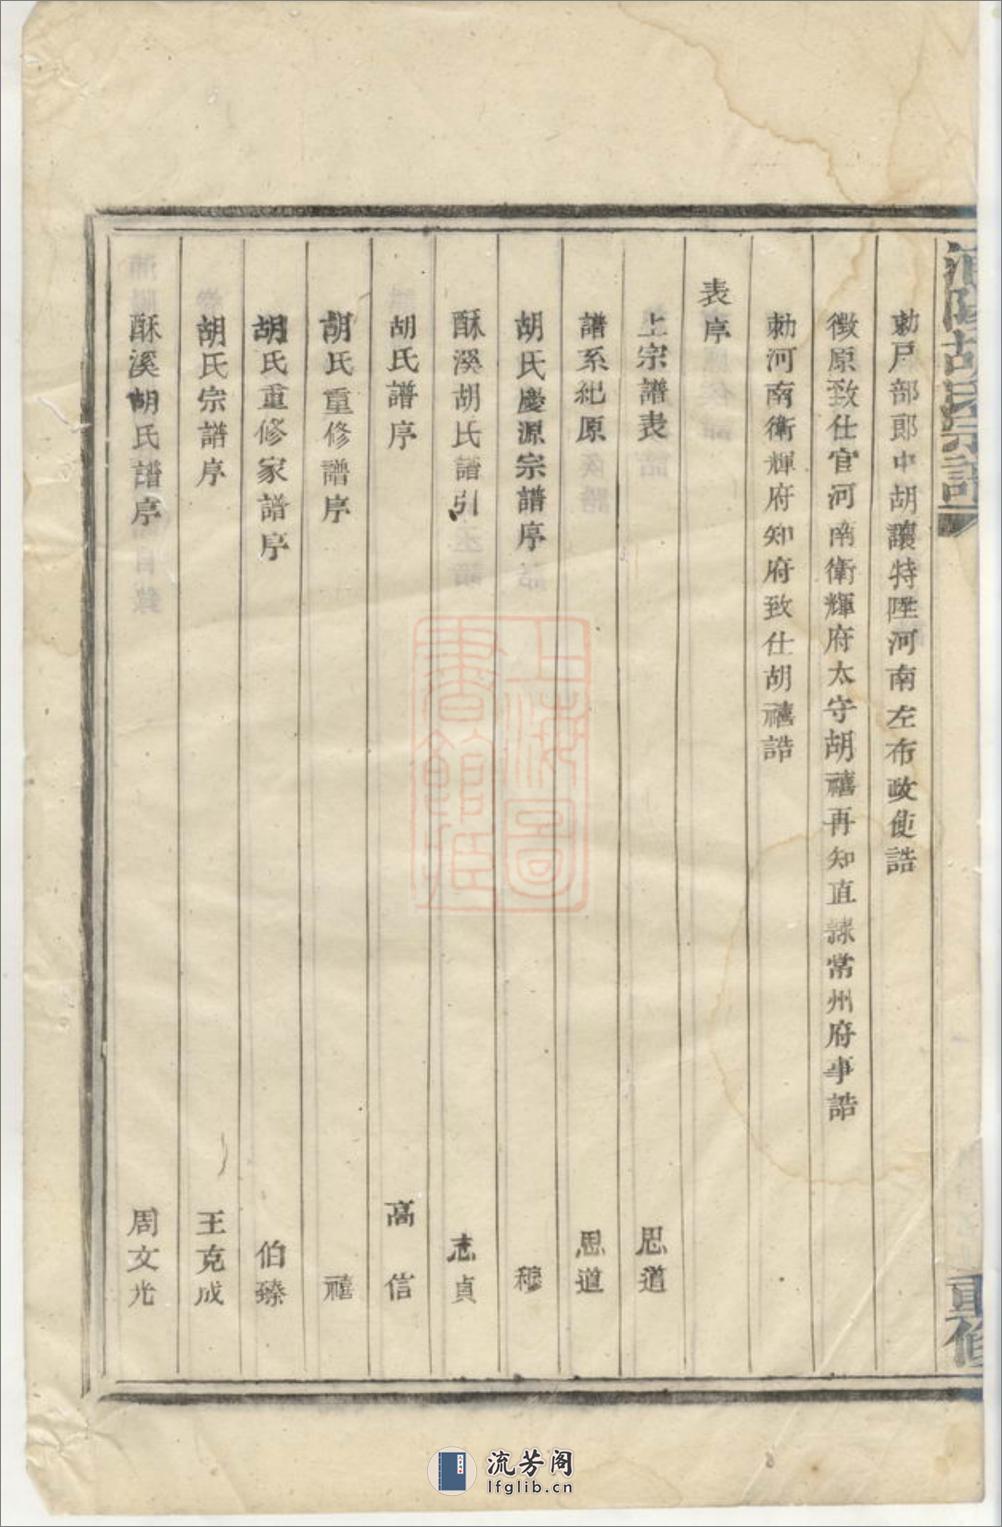 浦陽胡氏宗譜
重修
勅戶部郎中胡讓特陞河南左布政使誥
徵原致仕官河南衛輝府太守胡禧再知直隷常州府事誥
勅河南衛輝府知府致仕胡禧誥
表序
上宗譜表 思道
譜系紀原 思道
胡氏慶源宗譜序 穆
酥溪胡氏譜引 志貞
胡氏譜序 高信
胡氏重修譜序 禧
胡氏重修家譜序 伯臻
胡氏宗譜序 王克成
酥溪胡氏譜序 周文光
上海圖書館藏
流芳阁
lfglib.cn